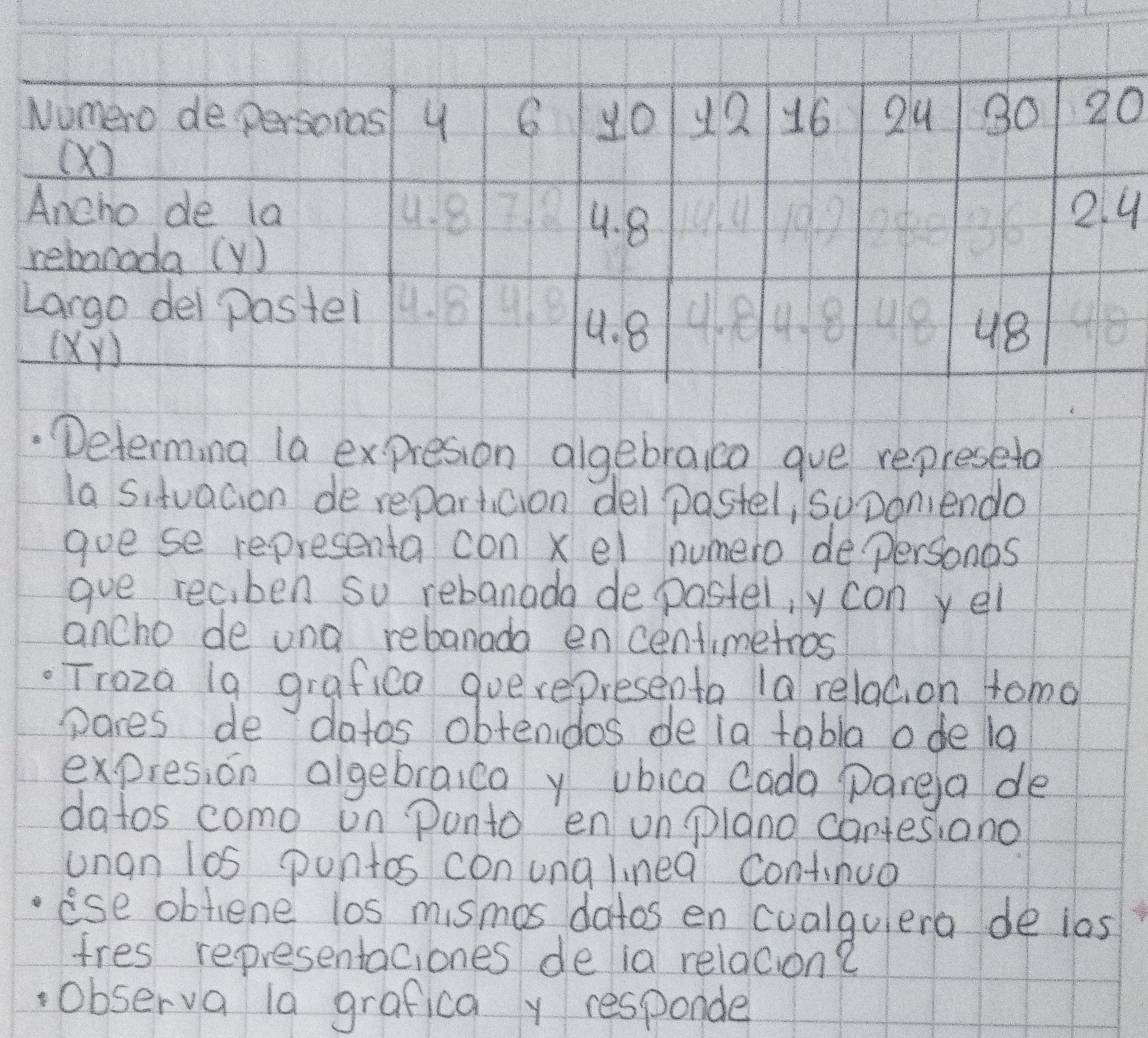 Numero de personas 4 6 10 12 16 24 30 20
(X)
Ancho de la 4.8 7.2 4.8 14.4 19.2 28.8 36 2.4
rebanada (y)
Largo del pastel 4.8 4.8 4.8 4.8 4.8 48 48 48
(Xy)
• Determina la expresion algebraico que represeta
la situacion de reparticion del pastel, suponiendo
que se representa con x el numero de personas
que reciben su rebanada de pastel, y con y el
ancho de una rebanada en centimetros
• Traza la grafica que representa la relacion toma
pares de datos obtenidos de la tabla o de la
expresión algebraica y ubica cada pareja de
datos como un punto en un plano cartesiano
unan los puntos con una linea continuo
• ¿se obtiene los mismos datos en cualquiera de las
tres representaciones de la relacion?
• Observa la grafica y responde